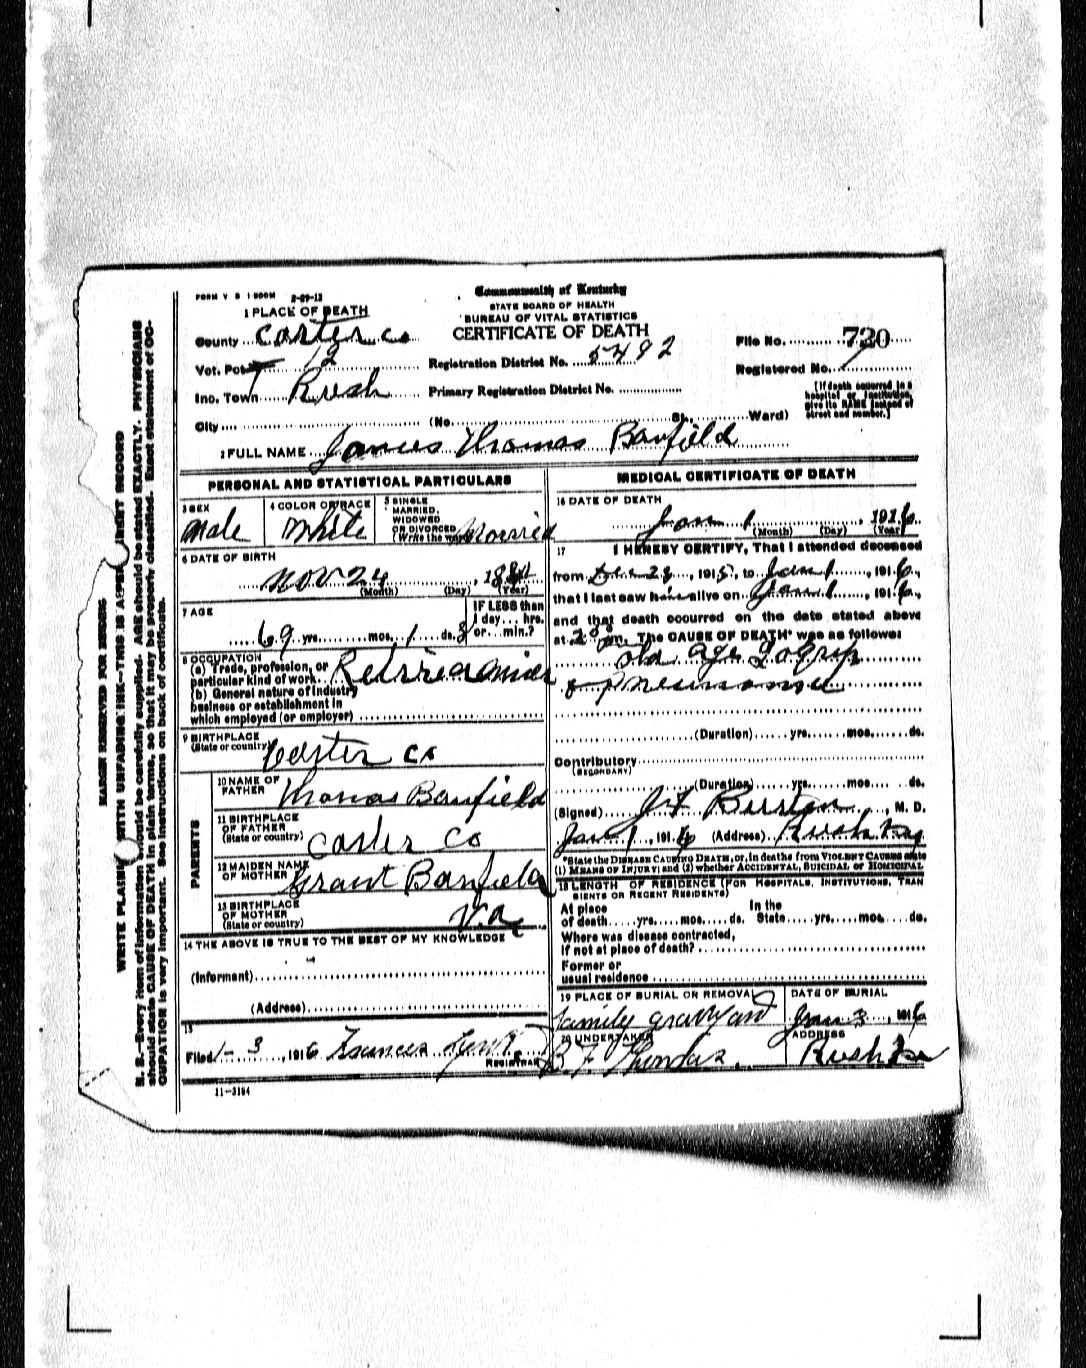 FORM V S 1-500M 2-29-12
Commonwealth of Kentucky
STATE BOARD OF HEALTH
BUREAU OF VITAL STATISTICS
CERTIFICATE OF DEATH
1 PLACE OF DEATH
County Carter Co
Vot. Pct 12
Inc. Town Rush
City
Registration District No. 5492
Primary Registration District No.
(No. St., Ward)
File No. 720
Registered No. 1
[If death occurred in a hospital or institution, give its NAME instead of street and number.]
2 FULL NAME James Thomas Banfield
PERSONAL AND STATISTICAL PARTICULARS
3 SEX
Male
4 COLOR OR RACE
White
5 SINGLE MARRIED, WIDOWED OR DIVORCED (Write the word) Married
6 DATE OF BIRTH
Nov 24, 18
(Month) (Day) (Year)
7 AGE
69 yrs. mos. 1 ds. 8
IF LESS than 1 day... hrs. or... min.?
8 OCCUPATION
(a) Trade, profession, or particular kind of work
(b) General nature of industry business or establishment in which employed (or employer)
9 BIRTHPLACE
(State or country) Carter Co
PARENTS
10 NAME OF FATHER Thomas Banfield
11 BIRTHPLACE OF FATHER (State or country) Carter Co
12 MAIDEN NAME OF MOTHER Grant Banfield
13 BIRTHPLACE OF MOTHER (State or country) Va
14 THE ABOVE IS TRUE TO THE BEST OF MY KNOWLEDGE
(Informant)
(Address)
15
Filed 1-3, 1916 Frances REGISTRAR
11-3184
MEDICAL CERTIFICATE OF DEATH
16 DATE OF DEATH
Jan 1, 1916
(Month) (Day) (Year)
17 I HEREBY CERTIFY, That I attended deceased
from Dec 28, 1915, to Jan 1, 1916,
that I last saw him alive on Jan 1, 1916,
and that death occurred on the date stated above
at 2 pm. The CAUSE OF DEATH* was as follows:
old age Lagrip
& Pneumonia
(Duration) yrs. mos. ds.
Contributory
(SECONDARY)
(Duration) yrs. mos. ds.
(Signed) M. D.
Jan 1, 1916 (Address) Rush Ky
*State the DISEASE CAUSING DEATH, or, in deaths from VIOLENT CAUSES state
(1) MEANS OF INJURY; and (2) whether ACCIDENTAL, SUICIDAL or HOMICIDAL
18 LENGTH OF RESIDENCE (FOR HOSPITALS, INSTITUTIONS, TRAN
SIENTS OR RECENT RESIDENTS)
At place of death yrs. mos. ds. In the State yrs. mos. ds.
Where was disease contracted,
if not at place of death?
Former or
usual residence
19 PLACE OF BURIAL OR REMOVAL
family graveyard
DATE OF BURIAL
Jan 3, 1916
20 UNDERTAKER
B. F. Thomas.
ADDRESS
Rush Ky
MARGIN RESERVED FOR BINDING
WRITE PLAINLY WITH UNFADING INK—THIS IS A PERMANENT RECORD
N. B.—Every item of information should be carefully supplied. AGE should be stated EXACTLY. PHYSICIANS
should state CAUSE OF DEATH in plain terms, so that it may be properly classified. Exact statement of OC-
CUPATION is very important. See instructions on back of certificate.